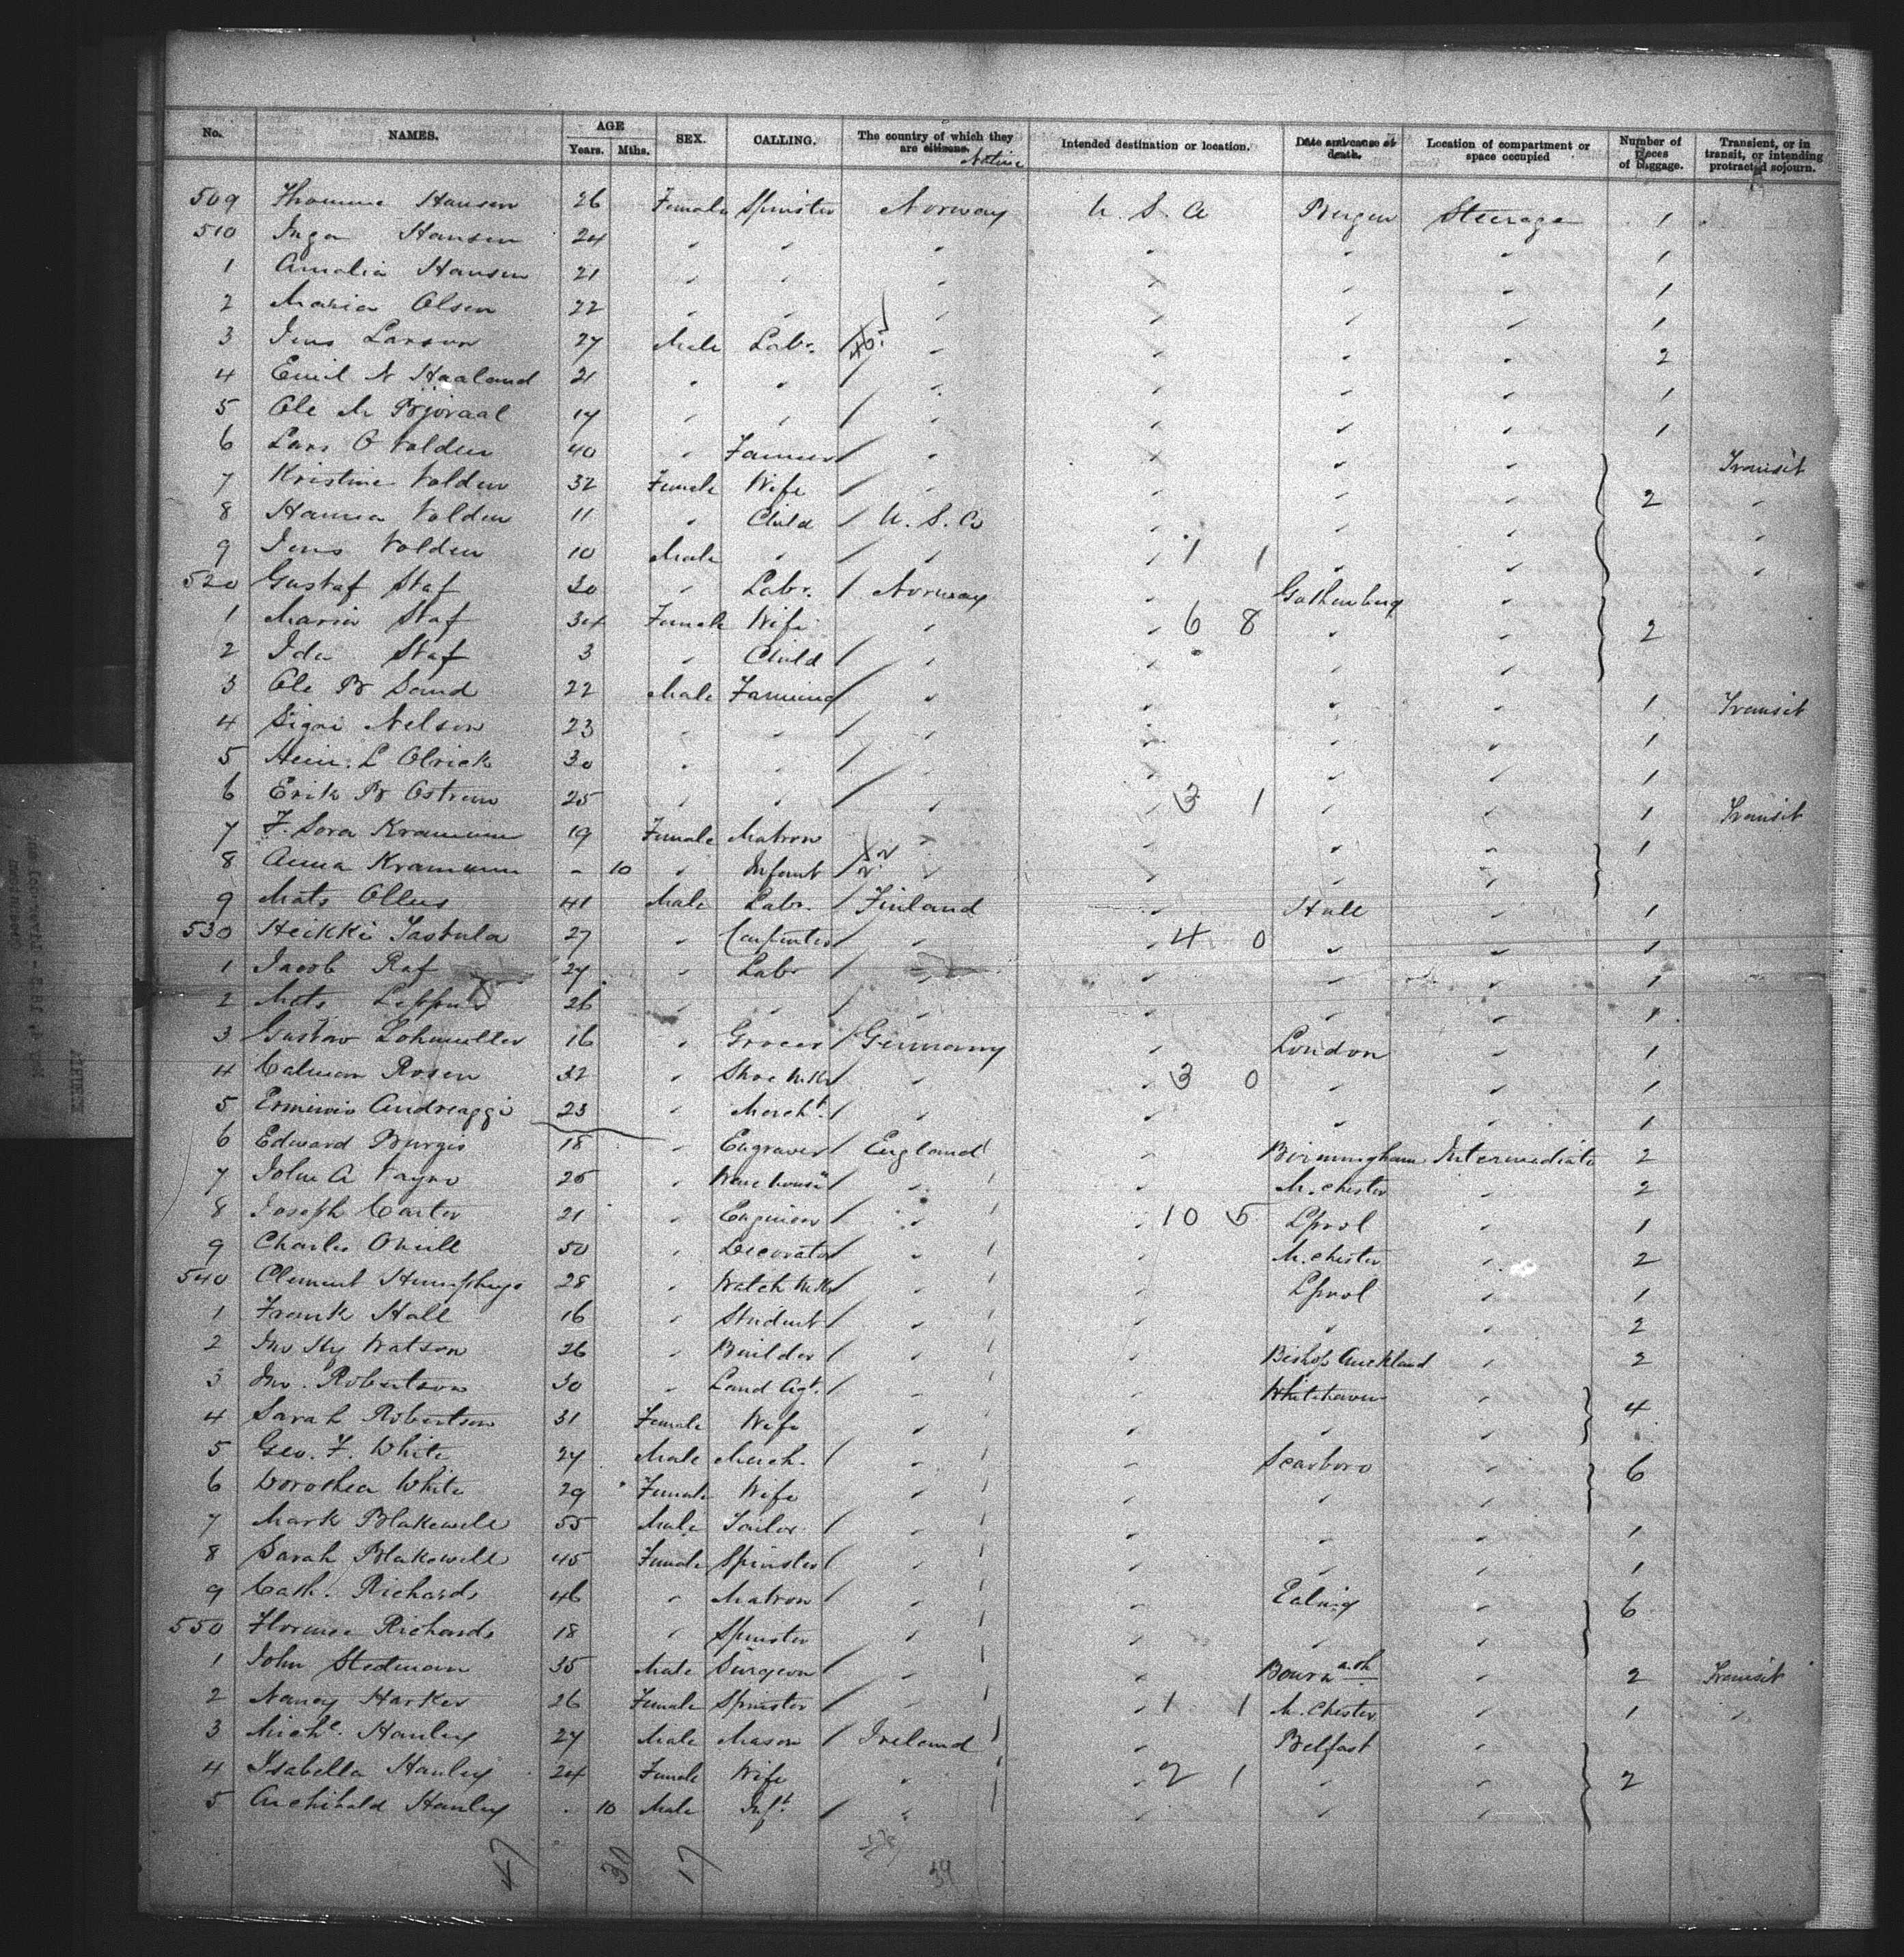 No. NAMES. AGE Years. Mths. SEX. CALLING. The country of which they are citizens. Native Intended destination or location. Date and cause of death. Location of compartment or space occupied Number of pieces of baggage. Transient, or in transit, or intending protracted sojourn.
509 Hansen 26 Female Spinster Norway U. S. A Bergen Steerage 1
510 Inga Hansen 24 " " " " " " 1
1 Amalia Hansen 21 " " " " " " 1
2 Maria Olsen 22 " " " " " " 1
3 Jens Larson 27 Male Labr. " " " " 2
4 Emil N Haaland 21 " " " " " " 1
5 Ole M 17 " " " " " " 1
6 Lars O Volden 40 " Farmer " " " " Transit
7 Kristine Volden 32 Female Wife " " " " 2 "
8 Hanna Volden 11 " Child U. S. A " " " "
9 Jens Volden 10 Male " " " 1 1 " " "
520 Gustaf Staf 30 " Labr. Norway " Gothenburg "
1 Maria Staf 34 Female Wife " " 6 8 " " 2
2 Ida Staf 3 " Child " " " "
3 Ole B Sand 22 Male Farming " " " " 1 Transit
4 Signi Nelson 23 " " " " " " 1
5 Hein. L Olrick 30 " " " " " " 1
6 Erik B Ostrem 25 " " " " 3 1 " " 1 Transit
7 F. Sora 19 Female Matron " " " " 1
8 Anna - 10 " Infant " " " "
9 Mats Ollus 41 Male Labr. Finland " Hull " 1
530 Heikki 27 " Carpenter " " 4 0 " " 1
1 Jacob Raf 27 " Labr " " " " 1
2 Mats 26 " " " " " " 1
3 Gustav Lohmuller 16 " Grocer Germany " London " 1
4 Calman Rosen 32 " Shoe Mkr " " 3 0 " " 1
5 Andreaggi 23 " Mercht. " " " " 1
6 Edward Burgis 18 " Engraver England " Birmingham Intermediate 2
7 John A 25 " " " M. chester " 2
8 Joseph Carter 21 " Engineer " " 10 5 Lpool " 1
9 Charles Oneill 50 " Decorator " " M. chester " 2
540 Clement Humphreys 28 " Watch Mkr " " Lpool " 1
1 Frank Hall 16 " Student " " " " 2
2 Jno Hy Watson 26 " Builder " " Bishop Auckland " 2
3 Jno. Robertson 30 " Land Agt. " " Whitehaven "
4 Sarah Robertson 31 Female Wife " " " " 4
5 Geo. F. White 27 Male Merch. " " Scarboro "
6 Dorothea White 29 Female Wife " " " " 6
7 Mark Blakewell 55 Male Tailor " " " " 1
8 Sarah Blakewell 45 Female Spinster " " " " 1
9 Cath. Richards 46 " Matron " " Ealing " 6
550 Florence Richards 18 " Spinster " " " "
1 John Stedman 35 Male Surgeon " " " 2 Transit
2 Nancy Harker 26 Female Spinster " " 1 1 M. Chester " 1 "
3 Michl. Hanley 27 Male Mason Ireland " Belfast "
4 Isabella Hanley 24 Female Wife " " 2 1 " " 2
5 Archibald Hanley - 10 Male Inft. " " " "
47 30 17 39